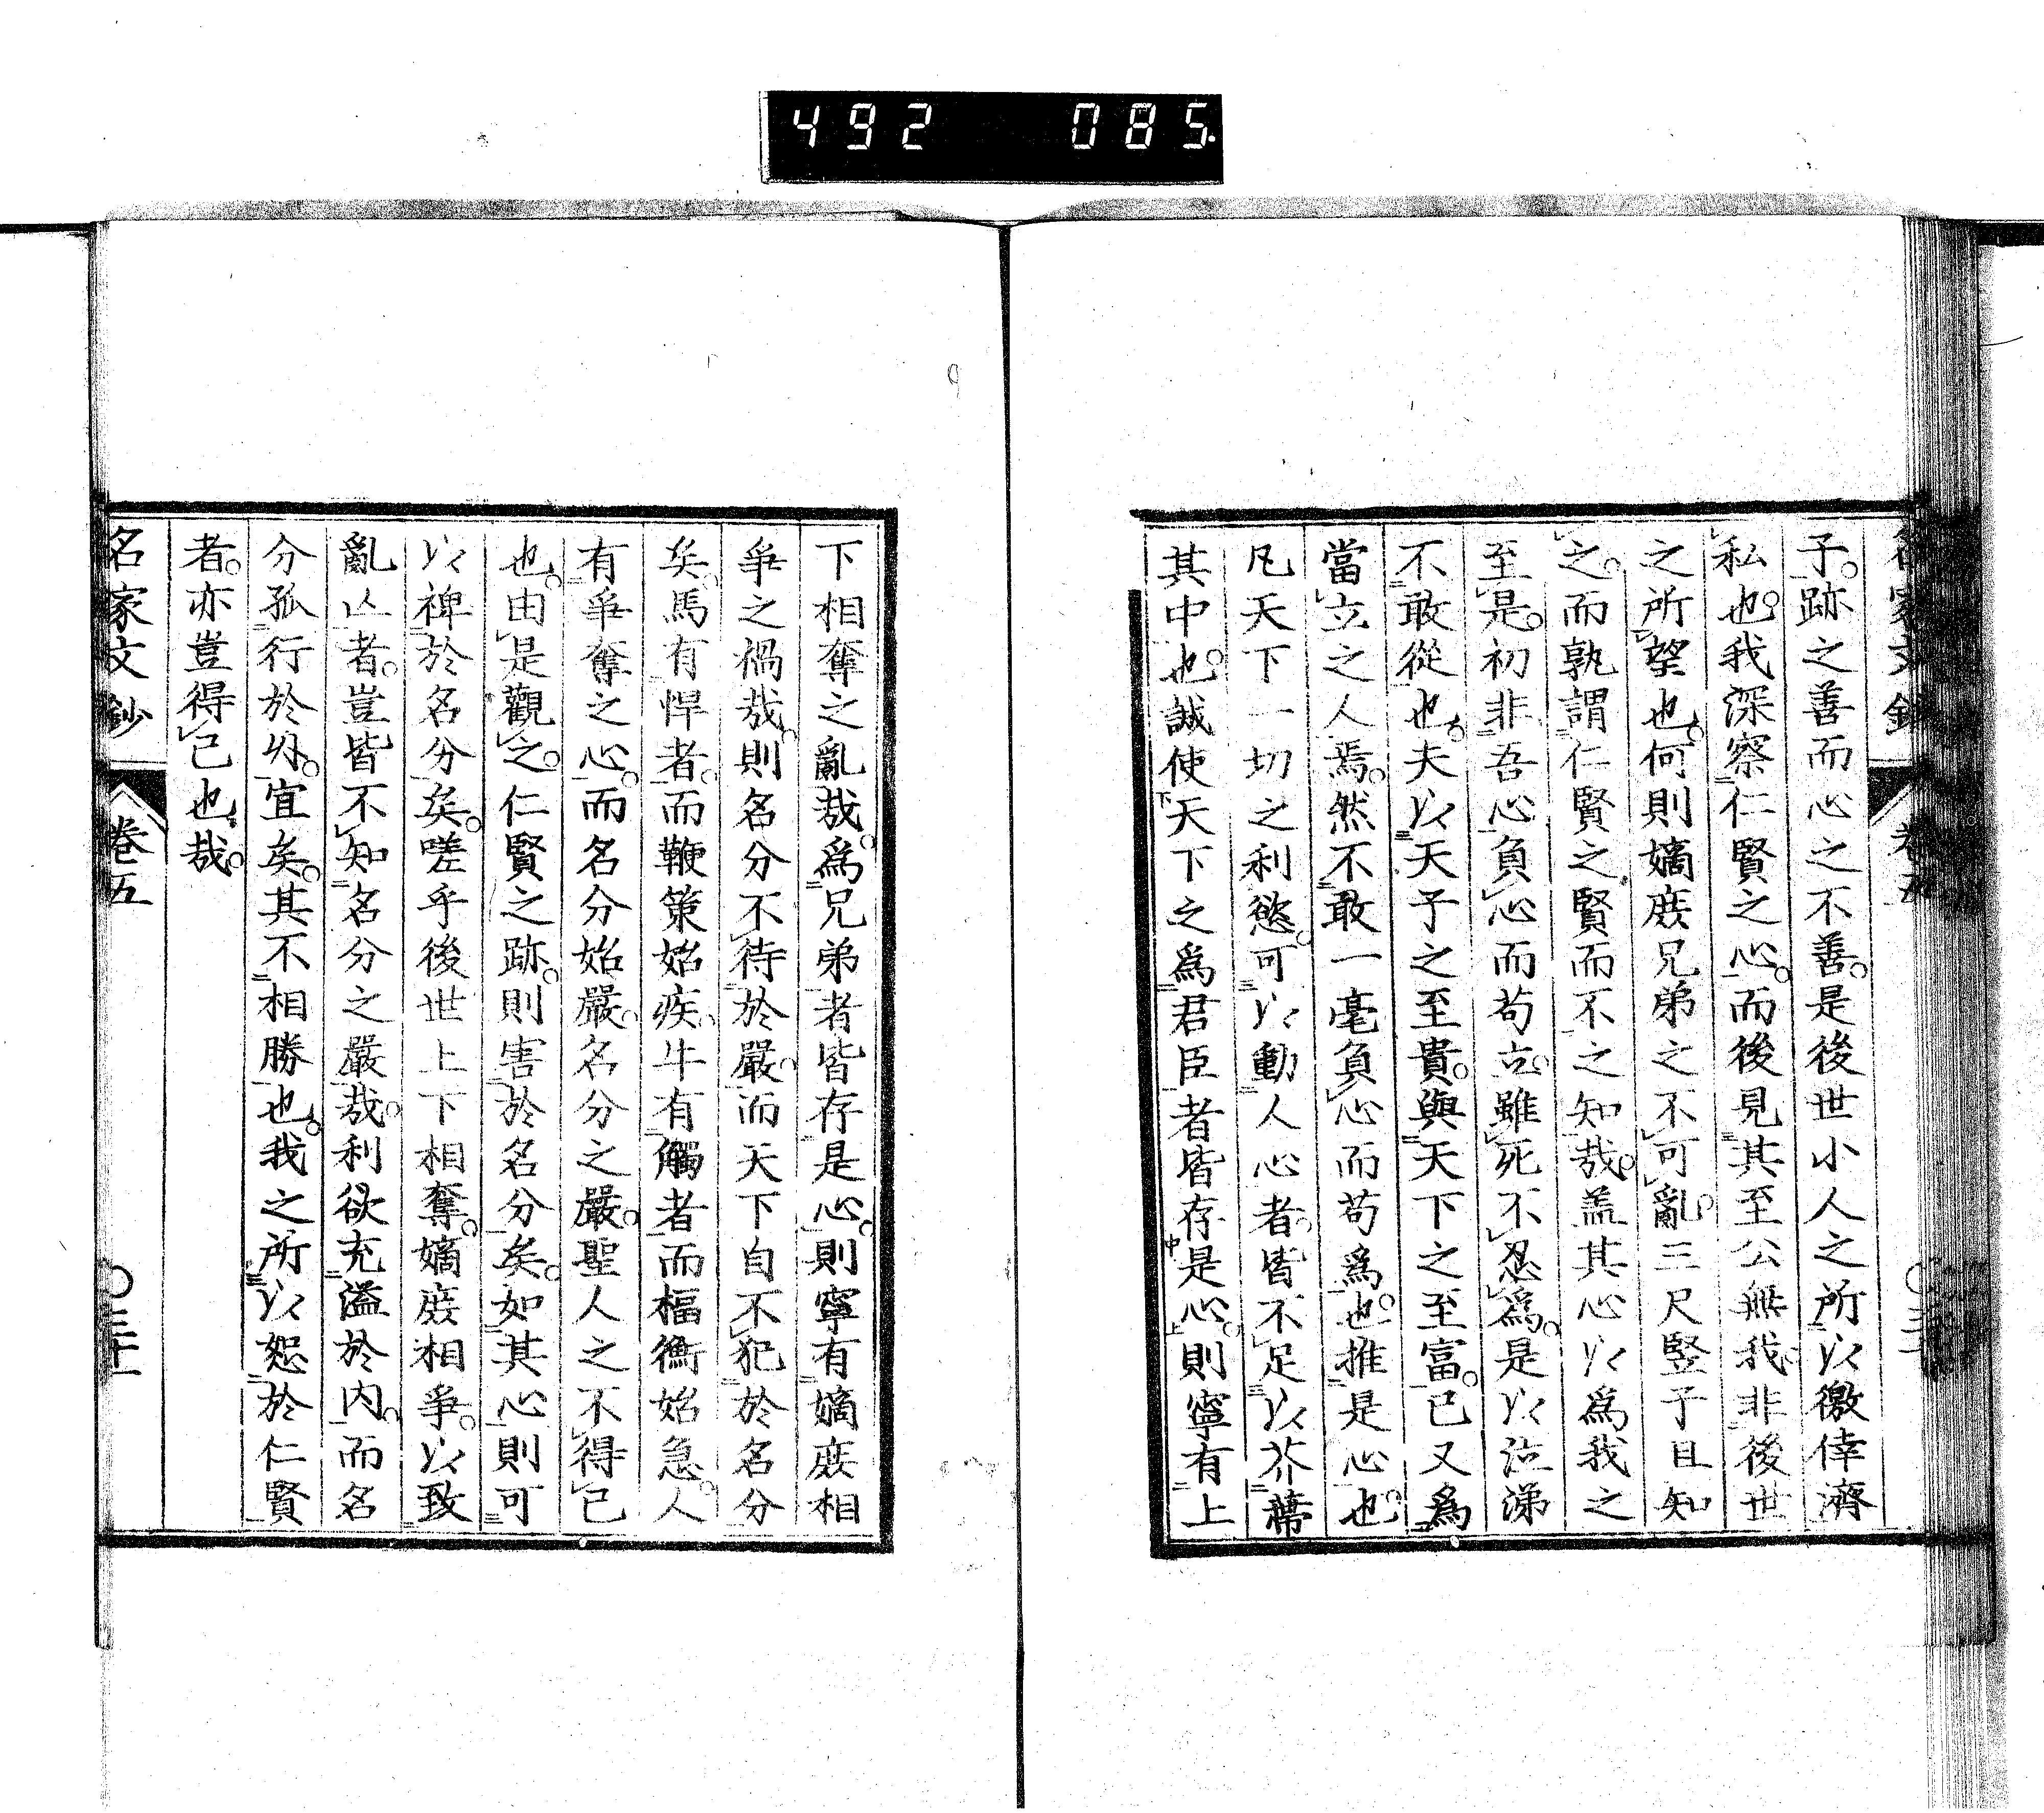 492 085
名家文鈔 卷五
子。跡之善而心之不善。是後世小人之所以徼倖濟
私也。我深察仁賢之心。而後見其至公無我。非後世
之所望也。何則嫡庶兄弟之不可亂。三尺竪子且知
之。而孰謂仁賢之賢而不之知哉。盖其心以為我之
至是。初非吾心負心而苟立。雖死不忍為。是以泣涕
不敢從也。夫以天子之至貴。與天下之至富。已又為
當立之人焉。然不敢一毫負心而苟為也。推是心也。
凡天下一切之利慾。可以動人心者。皆不足以芥蔕
其中也。誠使天下之為君臣者皆存是心。則寧有上
下相奪之亂哉。為兄弟者皆存是心。則寧有嫡庶相
爭之禍哉。則名分不待於嚴。而天下自不犯於名分
矣。馬有悍者。而鞭策始疾。牛有觸者而楅衡始急。人
有爭奪之心。而名分始嚴。名分之嚴。聖人之不得已
也。由是觀之。仁賢之跡。則害於名分矣。如其心則可
以裨於名分矣。嗟乎後世上下相奪。嫡庶相爭。以致
亂亾者。豈皆不知名分之嚴哉。利欲充溢於內。而名
分孤行於外。宜矣。其不相勝也。我之所以恕於仁賢
者。亦豈得已也哉。
名家文鈔 卷五 〇三十一